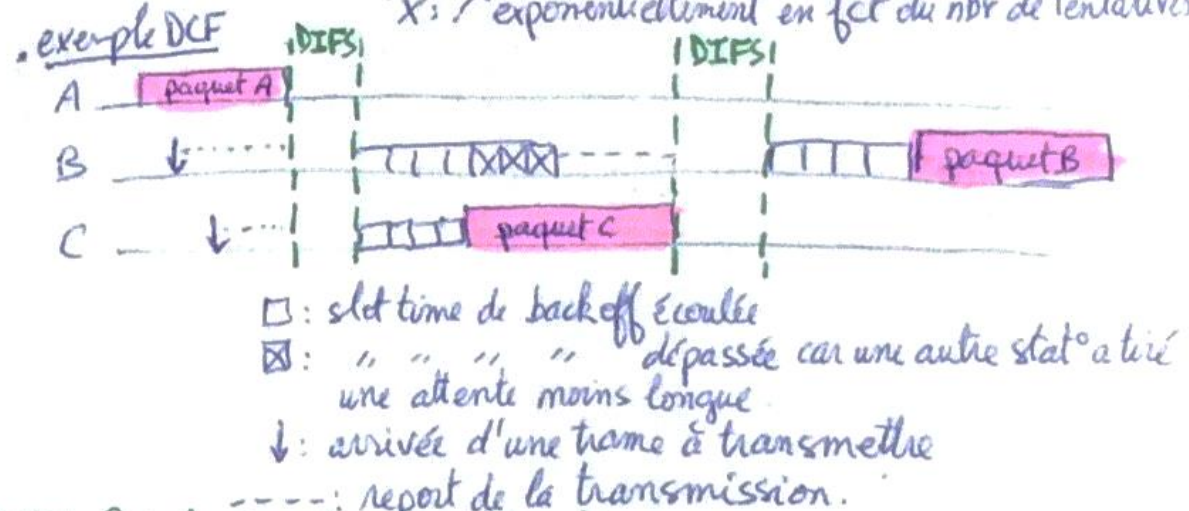 X : ↗ exponentiellement en fct du nbr de tentatives
. exemple DCF
DIFS DIFS
A paquet A
B paquet B
C paquet C
□ : slot time de backoff écoulée
☒ : " " " " dépassée car une autre stat° a tiré
une attente moins longue
↓ : arrivée d'une trame à transmettre
---- : report de la transmission.